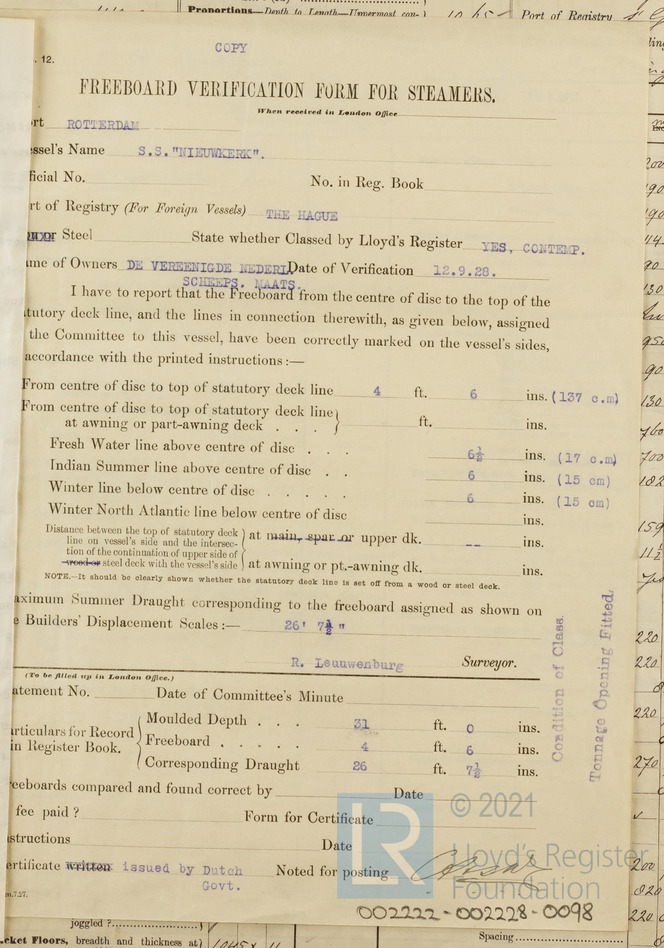 Proportions—Depth to Length—Uppermost con-
Port of Registry
COPY
. 12.
FREEBOARD VERIFICATION FORM FOR STEAMERS.
When received in London Office
rt ROTTERDAM
ssel's Name S.S."NIEUWKERK".
ficial No. No. in Reg. Book
rt of Registry (For Foreign Vessels) THE HAGUE
Steel State whether Classed by Lloyd's Register YES, CONTEMP.
me of Owners DE VEREENIGDE NEDERL. Date of Verification 12.9.28.
SCHEEPS. MAATS.
I have to report that the Freeboard from the centre of disc to the top of the
tutory deck line, and the lines in connection therewith, as given below, assigned
the Committee to this vessel, have been correctly marked on the vessel's sides,
accordance with the printed instructions :—
From centre of disc to top of statutory deck line 4 ft. 6 ins. (137 c.m)
From centre of disc to top of statutory deck line
at awning or part-awning deck . . . ft. ins.
Fresh Water line above centre of disc . . . 6½ ins. (17 c.m)
Indian Summer line above centre of disc . . 6 ins. (15 cm)
Winter line below centre of disc . . . . . 6 ins. (15 cm)
Winter North Atlantic line below centre of disc ins.
Distance between the top of statutory deck
line on vessel's side and the intersec-
tion of the continuation of upper side of
wood or steel deck with the vessel's side
at main, spar or upper dk. -- ins.
at awning or pt.-awning dk. ins.
NOTE.—It should be clearly shown whether the statutory deck line is set off from a wood or steel deck.
aximum Summer Draught corresponding to the freeboard assigned as shown on
e Builders' Displacement Scales :— 26' 7½"
R. Leuuwenburg Surveyor.
Condition of Class.
Tonnage Opening Fitted.
(To be filled up in London Office.)
atement No. Date of Committee's Minute
articulars for Record
in Register Book.
Moulded Depth . . . 31 ft. 0 ins.
Freeboard . . . . . 4 ft. 6 ins.
Corresponding Draught 26 ft. 7½ ins.
reeboards compared and found correct by Date
fee paid ? Form for Certificate
structions Date
ertificate written issued by Dutch Noted for posting
Govt.
m.7.27.
LR © 2021
Lloyd's Register
Foundation
002222-002228-0098
joggled ?
cket Floors, breadth and thickness at
Spacing